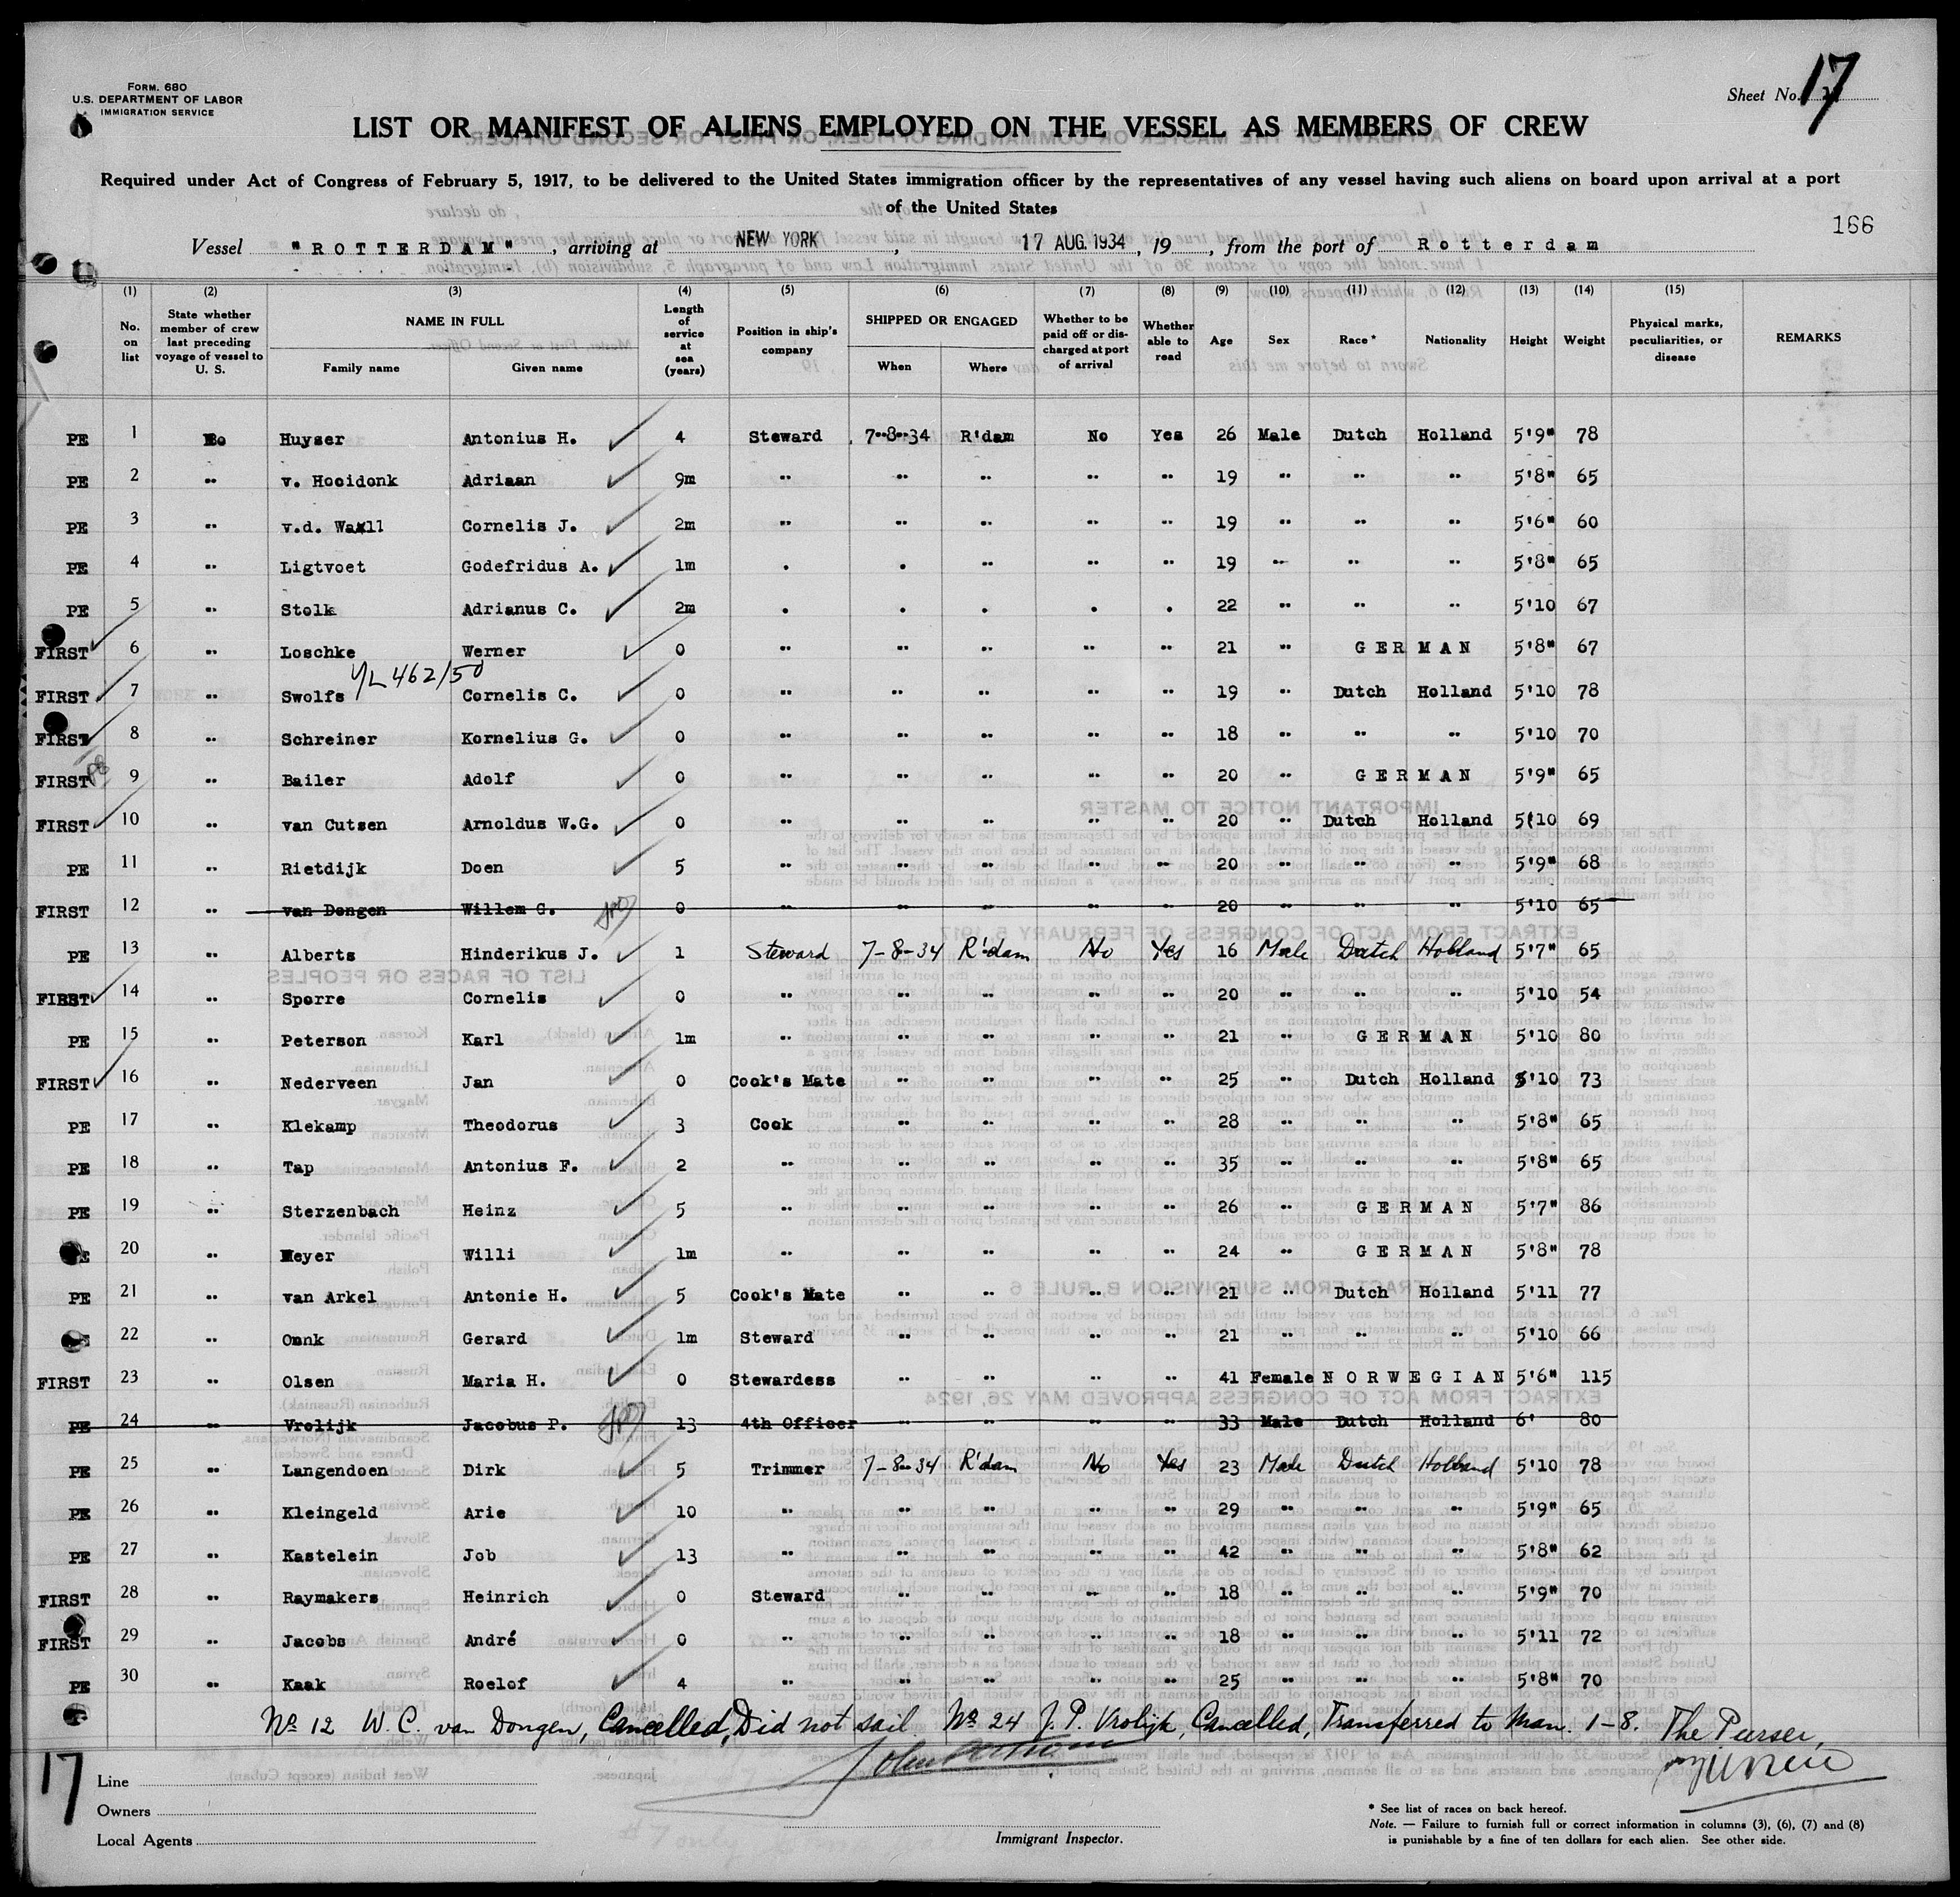 FORM. 680
U.S. DEPARTMENT OF LABOR
IMMIGRATION SERVICE
Sheet No. 17
LIST OR MANIFEST OF ALIENS EMPLOYED ON THE VESSEL AS MEMBERS OF CREW
Required under Act of Congress of February 5, 1917, to be delivered to the United States immigration officer by the representatives of any vessel having such aliens on board upon arrival at a port
of the United States
166
Vessel "ROTTERDAM", arriving at NEW YORK, 17 AUG. 1934, 19, from the port of Rotterdam
(1) (2) (3) (4) (5) (6) (7) (8) (9) (10) (11) (12) (13) (14) (15)
No. on list State whether member of crew last preceding voyage of vessel to U. S. NAME IN FULL Family name Given name Length of service at sea (years) Position in ship's company SHIPPED OR ENGAGED When Where Whether to be paid off or discharged at port of arrival Whether able to read Age Sex Race* Nationality Height Weight Physical marks, peculiarities, or disease REMARKS
PE 1 Huyser Antonius H. 4 Steward 7-8-34 R'dam No Yes 26 Male Dutch Holland 5'9" 78
PE 2 " v. Hooidonk Adriaan 9m " " " " " 19 " " " 5'8" 65
PE 3 " v.d. Waall Cornelis J. 2m " " " " " 19 " " " 5'6" 60
PE 4 " Ligtvoet Godefridus A. 1m . . " " " 19 " " " 5'8" 65
PE 5 " Stolk Adrianus C. 2m . . . . . 22 " " " 5'10 67
FIRST 6 " Loschke Werner 0 " " " " " 21 " GERMAN 5'8" 67
462/50
FIRST 7 " Swolfs Cornelis C. 0 " " " " " 19 " Dutch Holland 5'10 78
FIRST 8 " Schreiner Kornelius G. 0 " " " " " 18 " " " 5'10 70
FIRST 9 " Bailer Adolf 0 " " " " " 20 " GERMAN 5'9" 65
FIRST 10 " van Cutsen Arnoldus W.G. 0 " " " " " 20 " Dutch Holland 5(10 69
PE 11 " Rietdijk Doen 5 " " " " " 20 " " " 5'9" 68
FIRST 12 " van Dongen Willem C. 0 " " " " " 20 " " " 5'10 65
PE 13 " Alberts Hinderikus J. 1 Steward 7-8-34 R'dam No Yes 16 Male Dutch Holland 5'7" 65
FIRST 14 " Sperre Cornelis 0 " " " " " 20 " " " 5'10 54
PE 15 " Peterson Karl 1m " " " " " 21 " GERMAN 5'10 80
FIRST 16 " Nederveen Jan 0 Cook's Mate " " " " 25 " Dutch Holland 5'10 73
PE 17 " Klekamp Theodorus 3 Cook " " " " 28 " " " 5'8" 65
PE 18 " Tap Antonius F. 2 " " " " " 35 " " " 5'8" 65
PE 19 " Sterzenbach Heinz 5 " " " " " 26 " GERMAN 5'7" 86
20 " Meyer Willi 1m " " " " " 24 " GERMAN 5'8" 78
PE 21 " van Arkel Antonie H. 5 Cook's Mate " " " " 21 " Dutch Holland 5'11 77
22 " Onnk Gerard 1m Steward " " " " 21 " " " 5'10 66
FIRST 23 " Olsen Maria H. 0 Stewardess " " " " 41 Female NORWEGIAN 5'6" 115
PE 24 " Vrolijk Jacobus P. 13 4th Officer " " " " 33 Male Dutch Holland 6' 80
PE 25 " Langendoen Dirk 5 Trimmer 7-8-34 R'dam No Yes 23 Male Dutch Holland 5'10 78
PE 26 " Kleingeld Arie 10 " " " " " 29 " " " 5'9" 65
PE 27 " Kastelein Job 13 " " " " " 42 " " " 5'8" 62
FIRST 28 " Raymakers Heinrich 0 Steward " " " " 18 " " " 5'9" 70
FIRST 29 " Jacobs André 0 " " " " " 18 " " " 5'11 72
PE 30 " Kaak Roelof 4 " " " " " 25 " " " 5'8" 70
No 12 W. C. van Dongen, Cancelled, Did not sail. No 24 J. P. Vrolijk, Cancelled, Transferred to Man. 1-8. The Purser,
17
Line
Owners
Local Agents
Immigrant Inspector.
* See list of races on back hereof.
Note. — Failure to furnish full or correct information in columns (3), (6), (7) and (8)
is punishable by a fine of ten dollars for each alien. See other side.